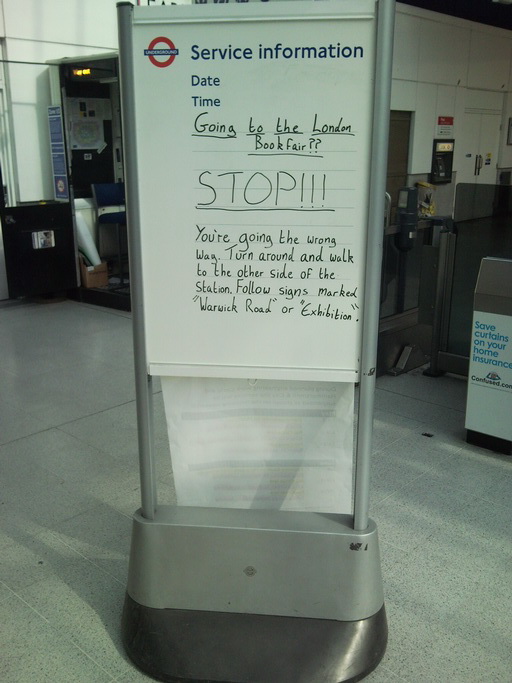 UNDERGROUND
Service information
Date
Time
Going to the London
Bookfair??
STOP!!!
You're going the wrong
way. Turn around and walk
to the other side of the
Station. Follow signs marked
"Warwick Road" or "Exhibition".
Save
curtains
on your
home
insurance
Confused.com